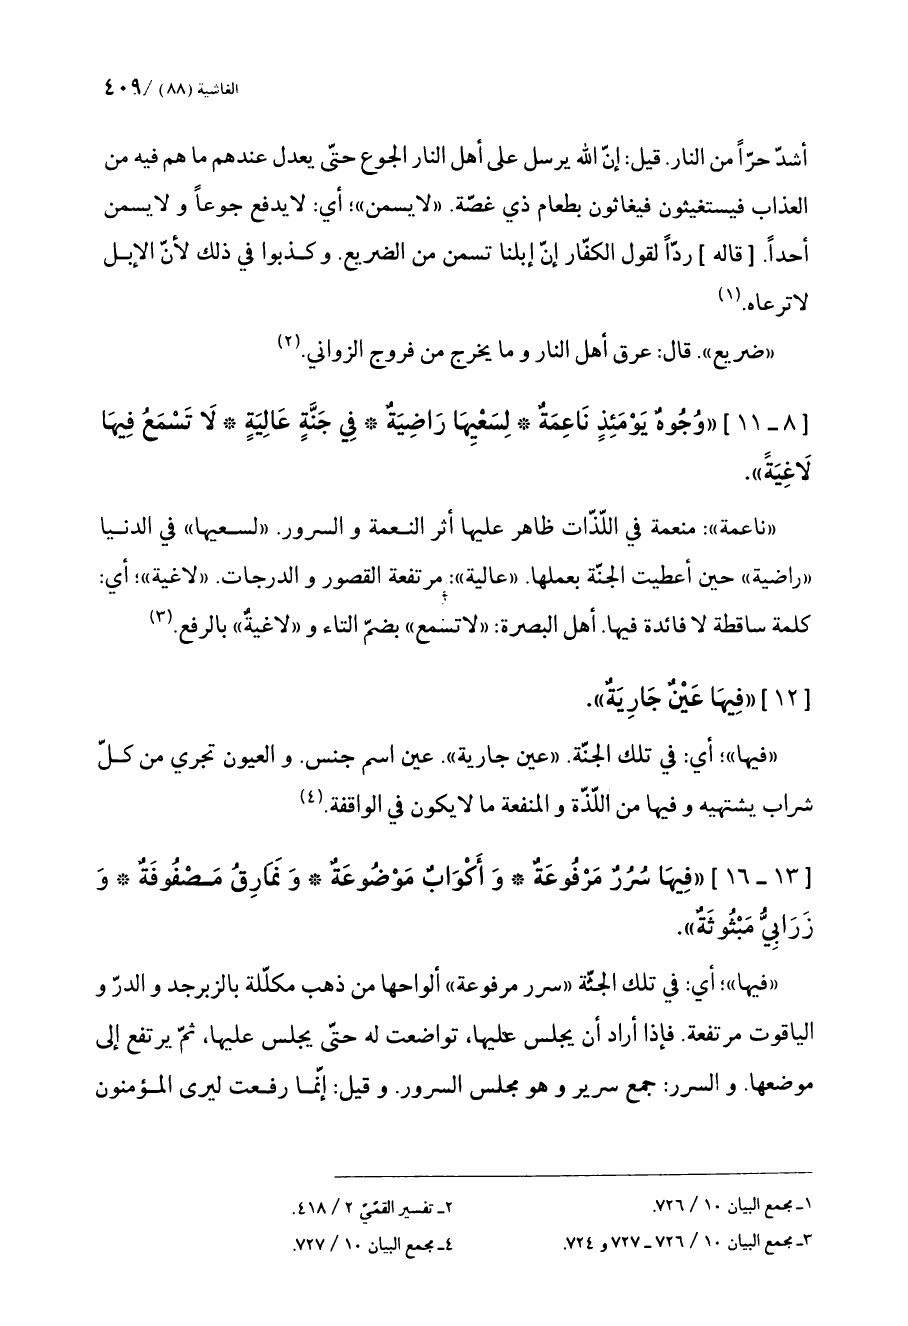 الغاشية (٨٨) / ٤٠٩
أشدّ حرّاً من النار. قيل: إنّ الله يرسل على أهل النار الجوع حتّى يعدل عندهم ما هم فيه من
العذاب فيستغيثون فيغاثون بطعام ذي غصّة. «لايسمن»؛ أي: لايدفع جوعاً و لايسمن
أحداً. [ قاله ] ردّاً لقول الكفّار إنّ إبلنا تسمن من الضريع. و كذبوا في ذلك لأنّ الإبل
لاترعاه.(١)
«ضريع». قال: عرق أهل النار و ما يخرج من فروج الزواني.(٢)
[٨ ـ ١١] «وُجُوهٌ يَوْمَئِذٍ نَاعِمَةٌ * لِسَعْيِهَا رَاضِيَةٌ * فِي جَنَّةٍ عَالِيَةٍ * لَا تَسْمَعُ فِيهَا
لَاغِيَةً».
«ناعمة»: منعمة في اللّذّات ظاهر عليها أثر النعمة و السرور. «لسعيها» في الدنيا
«راضية» حين أعطيت الجنّة بعملها. «عالية»: مرتفعة القصور و الدرجات. «لاغية»؛ أي:
كلمة ساقطة لا فائدة فيها. أهل البصرة: «لاتسمع» بضمّ التاء و «لاغيةٌ» بالرفع.(٣)
[١٢] «فِيهَا عَيْنٌ جَارِيَةٌ».
«فيها»؛ أي: في تلك الجنّة. «عين جارية». عين اسم جنس. و العيون تجري من كلّ
شراب يشتهيه و فيها من اللّذّة و المنفعة ما لايكون في الواقفة.(٤)
[١٣ ـ ١٦] «فِيهَا سُرُرٌ مَرْفُوعَةٌ * وَ أَكْوَابٌ مَوْضُوعَةٌ * وَ نَمَارِقُ مَصْفُوفَةٌ * وَ
زَرَابِيُّ مَبْثُوثَةٌ».
«فيها»؛ أي: في تلك الجنّة «سرر مرفوعة» ألواحها من ذهب مكلّلة بالزبرجد و الدرّ و
الياقوت مرتفعة. فإذا أراد أن يجلس عليها، تواضعت له حتّى يجلس عليها، ثمّ يرتفع إلى
موضعها. و السرر: جمع سرير و هو مجلس السرور. و قيل: إنّما رفعت ليرى المؤمنون
١ـ مجمع البيان ١٠ / ٧٢٦.
٢ـ تفسير القمّيّ ٢ / ٤١٨.
٣ـ مجمع البيان ١٠ / ٧٢٦ ـ ٧٢٧ و ٧٢٤.
٤ـ مجمع البيان ١٠ / ٧٢٧.